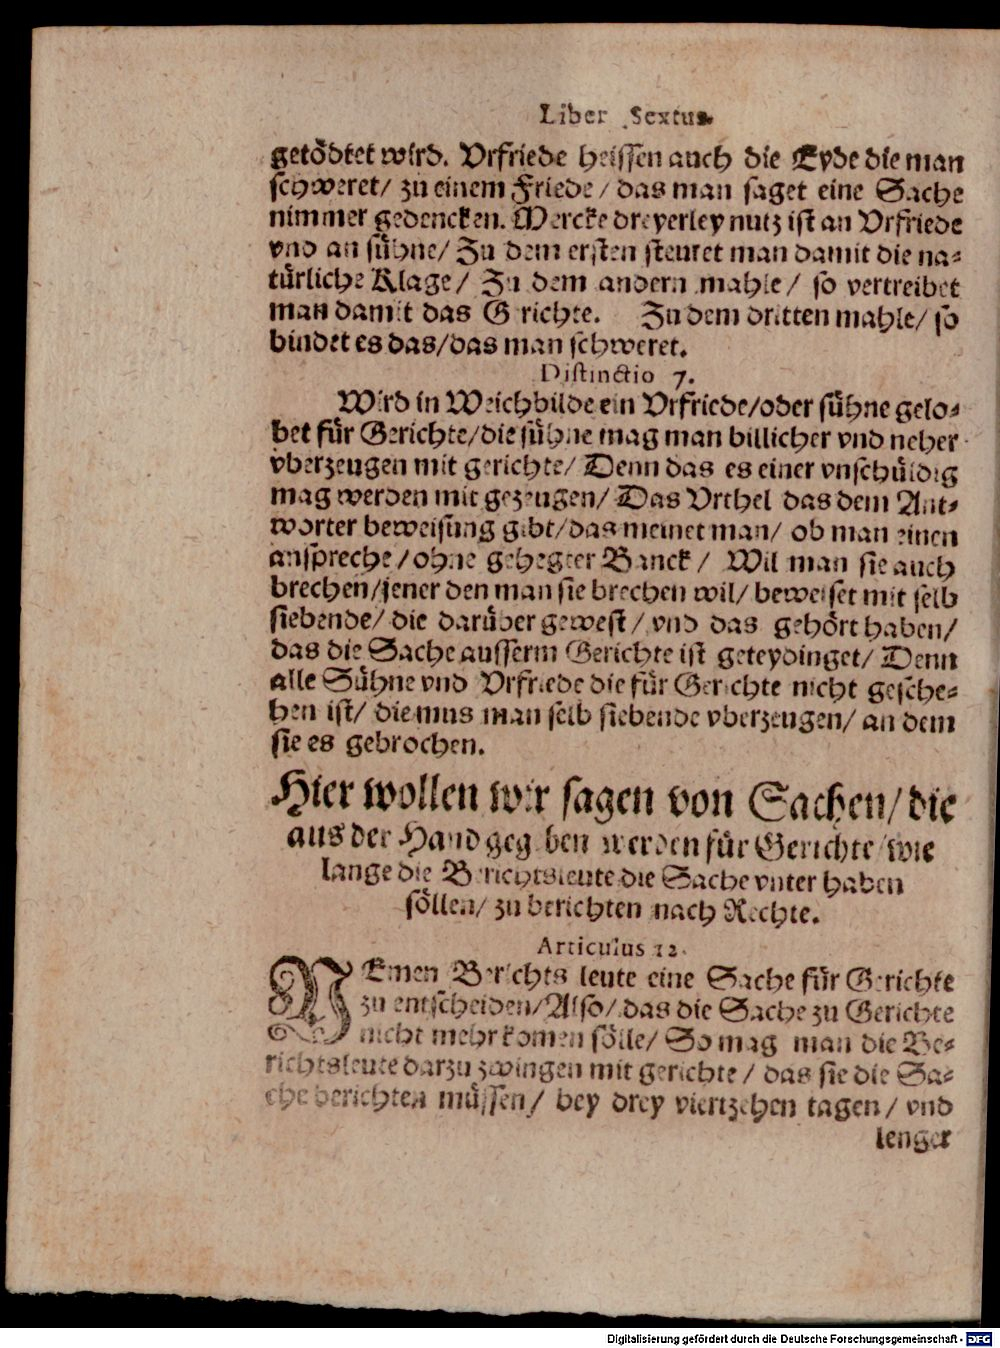 Liber Sextus.
getödtet wird. Vrfriede heissen auch die Eyde die man
schweret/ zu einem Friede/ das man saget eine Sache
nimmer gedencken. Mercke dreyerley nutz ist an Vrfriede
vnd an sühne/ Zu dem ersten steuret man damit die na-
türliche Klage/ Zu dem andern mahle/ so vertreibet
man damit das Gerichte. Zu dem dritten mahle/ so
bindet es das/das man schweret.
Distinctio 7.
Wird in Weichbilde ein Vrfriede/oder sühne gelo-
bet für Gerichte/die sühne mag man billicher vnd neher
vberzeugen mit gerichte/ Denn das es einer vnschüldig
mag werden mit gezeugen/ Das Vrthel das dem Ant-
worter beweisung gibt/das meinet man/ ob man einen
anspreche/ohne gehegter Banck/ Wil man sie auch
brechen/jener den man sie brechen wil/ beweiset mit selb
siebende/ die darüber gewest/ vnd das gehört haben/
das die Sache ausserm Gerichte ist geteydinget/ Denn
alle Sühne vnd Vrfriede die für Gerichte nicht gesche-
hen ist/ die mus man selb siebende vberzeugen/ an dem
sie es gebrochen.
Hier wollen wir sagen von Sachen/ die
aus der Hand gegeben werden für Gerichte/wie
lange die Berichtsleute die Sache vnter haben
söllen/ zu berichten nach Rechte.
Articulus 12.
NEmen Berichts leute eine Sache für Gerichte
zu entscheiden/Also/ das die Sache zu Gerichte
nicht mehr komen sölle/ So mag man die Be-
richtsleute darzu zwingen mit gerichte/ das sie die Sa-
che berichten müssen/ bey drey viertzehen tagen/ vnd
lenger
Digitalisierung gefördert durch die Deutsche Forschungsgemeinschaft - DFG